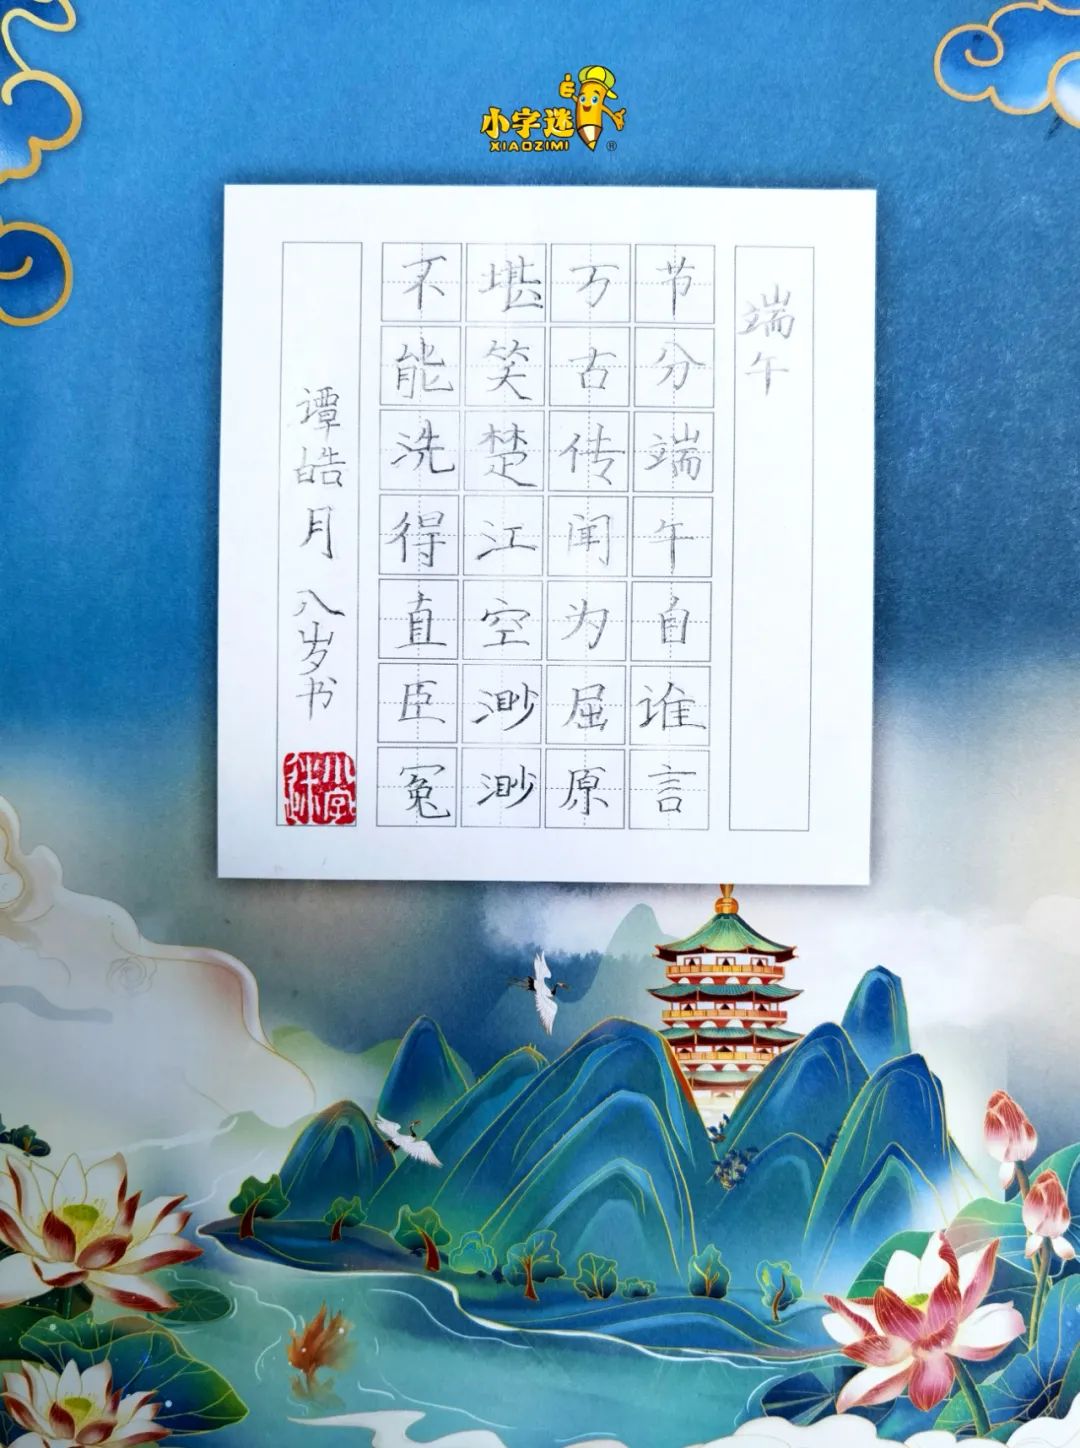 小字迷
XIAOZIMI
®
端午
节分端午自谁言
万古传闻为屈原
堪笑楚江空渺渺
不能洗得直臣冤
谭皓月 八岁书
小字迷